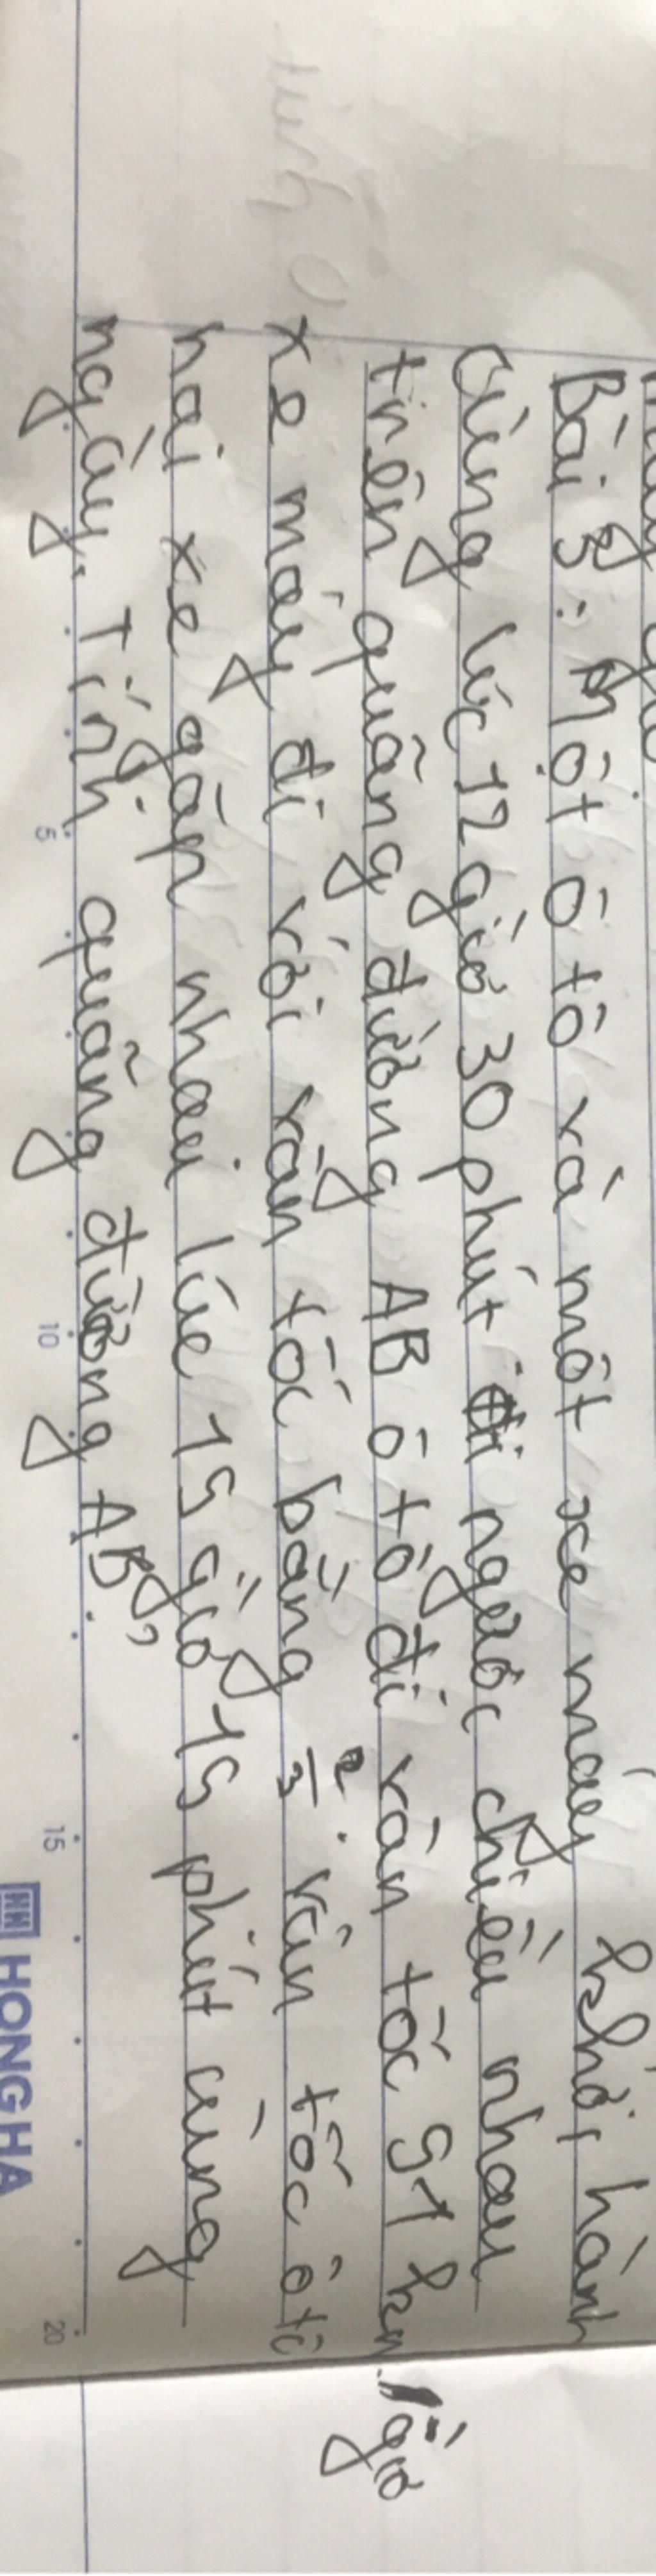 Bài 3: Một ô tô và một xe máy khởi hành
Cùng lúc 12 giờ 30 phút đi ngược chiều nhau
trên quãng đường AB ô tô đi vận tốc 51 km/giờ
xe máy đi với vận tốc bằng 2/3 vận tốc ô tô
hai xe gặp nhau lúc 15 giờ 15 phút cùng
ngày. Tính quãng đường AB?
5 10 15 20
HH HONG HA